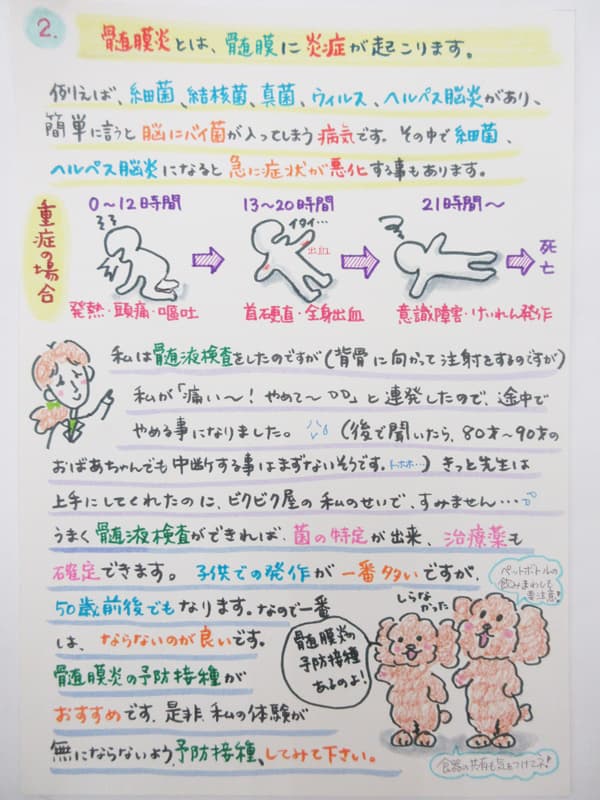 2.
髄膜炎とは、髄膜に炎症が起こります。
例えば、細菌、結核菌、真菌、ウィルス、ヘルペス脳炎があり、
簡単に言うと脳にバイ菌が入ってしまう病気です。その中で細菌、
ヘルペス脳炎になると急に症状が悪化する事もあります。
重症の場合
0～12時間
13～20時間
21時間～
ぞぞ
イタイ…
出血
死亡
発熱・頭痛・嘔吐
首硬直・全身出血
意識障害・けいれん発作
私は髄液検査をしたのですが(背骨に向かって注射をするのですが)
私が「痛い～!やめて～」と連発したので、途中で
やめる事になりました。(後で聞いたら、80才～90才の
おばあちゃんでも中断する事はまずないそうです。トホホ…)きっと先生は
上手にしてくれたのに、ビクビク屋の私のせいで、すみません…
うまく髄液検査ができれば、菌の特定が出来、治療薬も
確定できます。子供での発作が一番多いですが、
50歳前後でもなります。なので一番
は、ならないのが良いです。
髄膜炎の予防接種が
おすすめです。是非、私の体験が
無にならないよう予防接種、してみて下さい。
ペットボトルの
飲みまわしも
要注意!
しらな
かった
髄膜炎の
予防接種
あるのよ!
食器の共有も気をつけてネ!